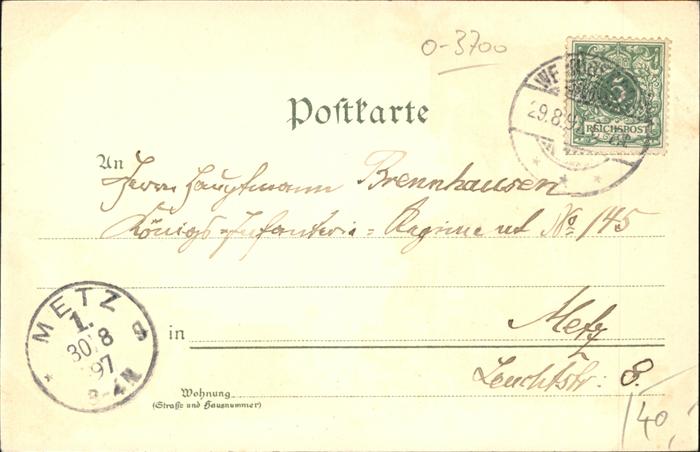 0-3700
29.8.9
5
REICHSPOST
Postkarte
An
Herrn Hauptmann Brennhausen
Königs-Infanterie-Regiment No 145
METZ
1.
30/8
97
in
Metz
Leuchtstr: 8.
Wohnung
(Straße und Hausnummer)
140,